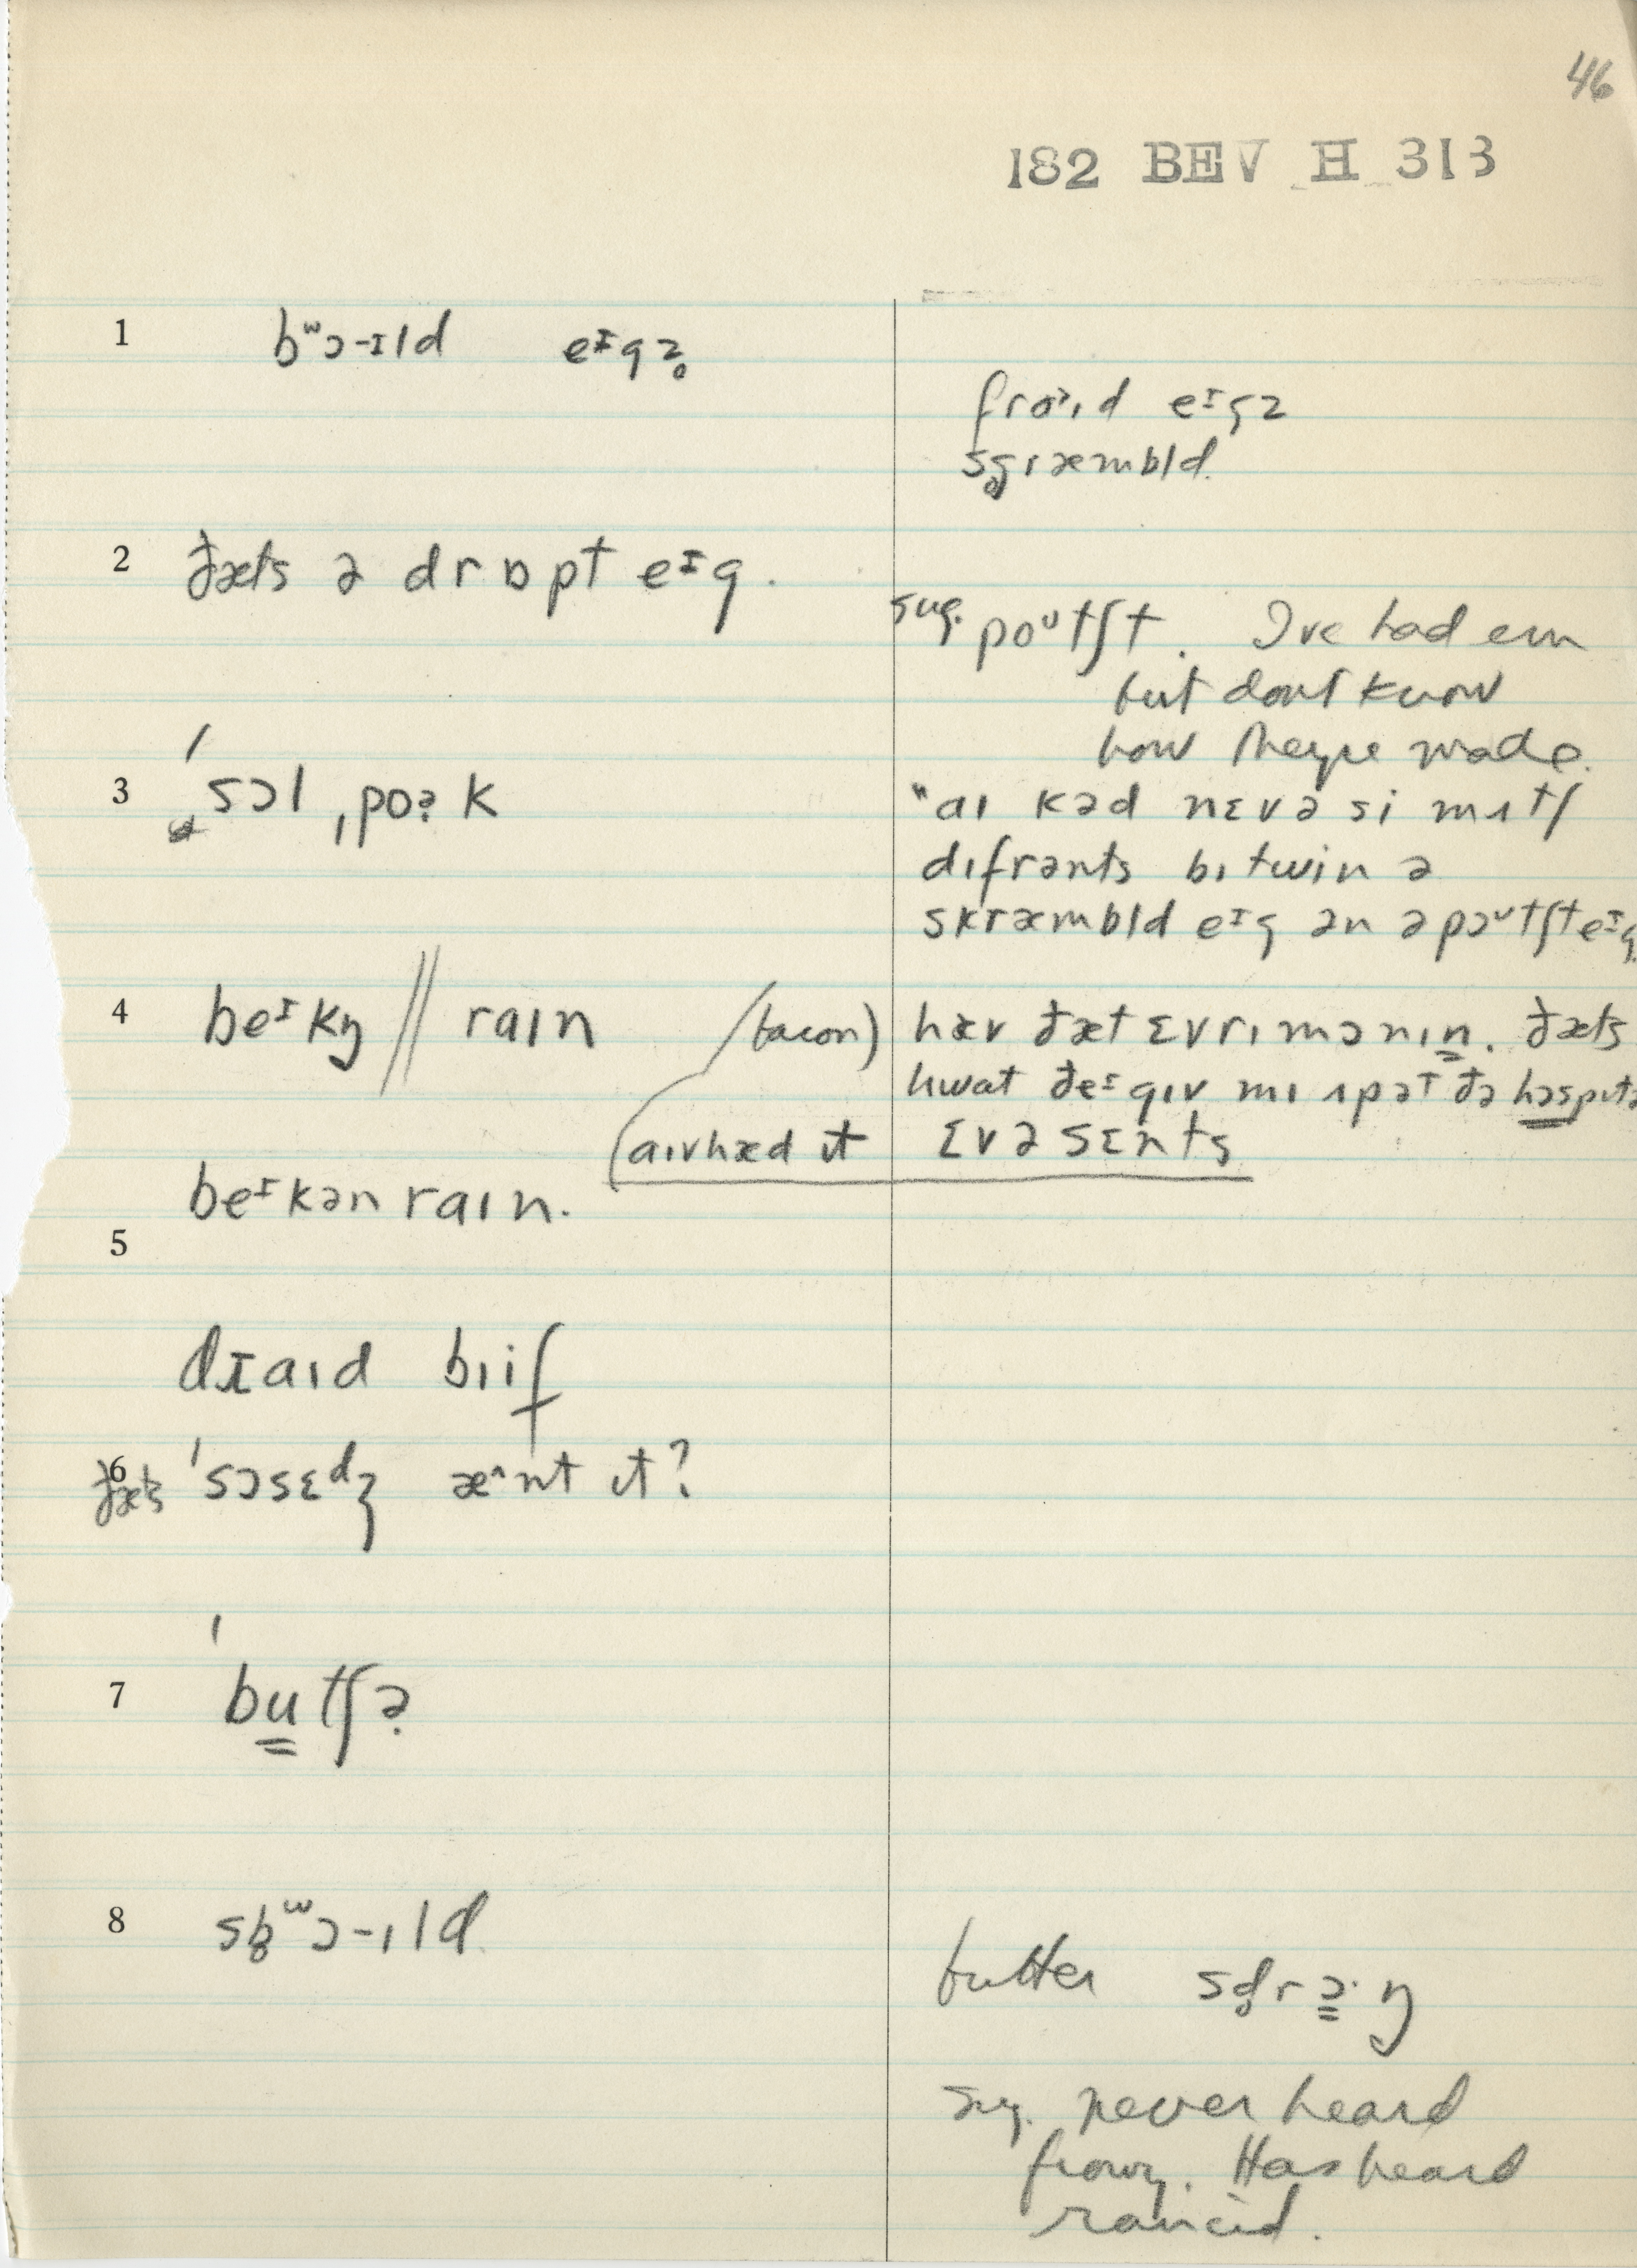 46
182 BEV H 313
1 bʷɔ-ɪld eᴵgz̥
fraˀɪd eᴵgz
sg̥ræmbld.
2 ðæts ə drɒpt eᴵg.
sug. poᵘtʃt. I've had em
but don't know
how they're made.
3 ˈsɔl ˌpoə̣k
"aɪ kəd nɛvə si mʌtʃ
dɪfrənts bɪtwin ə
skræmbld eᴵg ən ə pəᵘtʃt eᴵg
4 beᴵkŋ // raɪn (bacon)
hæv ðæt ɛvrɪ mɔnɪn. ðæts
hwat ðeᴵ gɪv mɪ ʌp ət ðə hɔspɪtə
aɪv hæd ɪt ɛvə sɛnts
beᴵkən raɪn.
5
draɪd bɪif
6 ðæts ˈsɔsɛᵈʒ æ^nt ɪt?
7 ˈbutʃə̣
8 sb̥ʷɔ-ɪld
butter sd̥rɔ·ŋ
sug. never heard
frowy. Has heard
rancid.